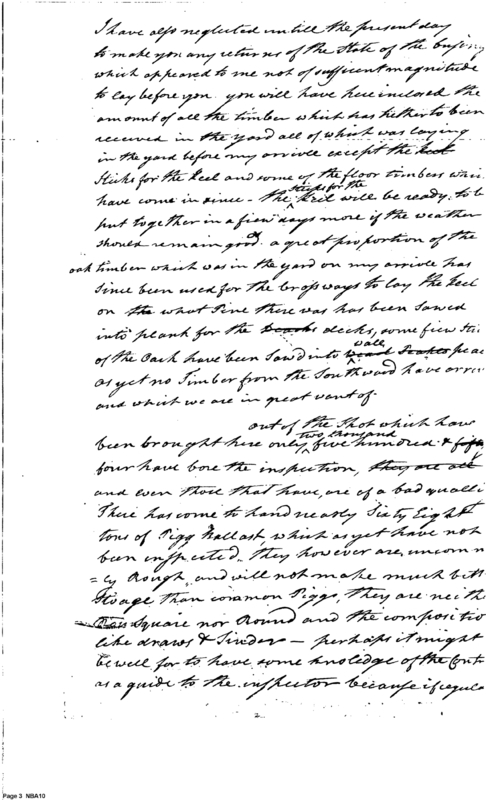 I have also neglected untill the present day
to make you any returns of the State of the
which appeared to me not of sufficient magnitude
to lay before you. you will have here inclosed the
amount of all the timber which has hetherto been
received in the Yard all of which was laying
in the yard before my arrivle except the keel
Sticks for the keel and some of the floor timbers
have come in since - the Sticks for the keel will be ready to be
put together in a fiew days more if the weather
should remain good. a great proportion of the
oak timber which was in the yard on my arrivle has
since been used for the crossways to lay the keel
on the what Pine there was has been Sawed
into plank for the decks, some fiew
of the Oack have been Sawd into wall
as yet no Timber from the Southward have
and which we are in great want of.
out of the Shot which have
been brought here only two thousand five hundred &
four have bore the inspection, they are all
and even those that have, are of a bad
There has come to hand nearly Sixty Eight
tons of Pigg Ballast which as yet have not
been inspected. they however are
Rough, and will not make much
Stoage than common Piggs, they are
Square nor Round and the
like draws & Sinders - perhaps it might
be well for to have some knoledge of the
as a guide to the inspector because if
Page 3 NBA10